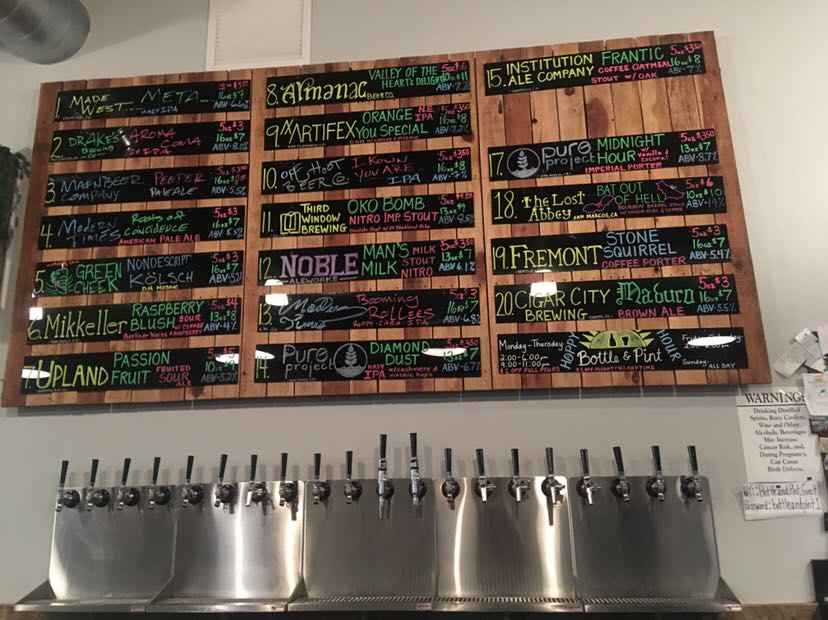 1 MADE WEST META
HAZY IPA
5oz $3.50
16oz $7
ABV-6.6%
2 DRAKE'S AROMA COMA
BREWING IPA
5oz $3
16oz $7
ABV-8.0%
3 MAINE BEER COMPANY PEEPER
PALE ALE
ABV-5.5%
4 Modern Times Roots of Coincidence
AMERICAN PALE ALE
5oz $3
16oz $7
ABV-5.5%
5 GREEN CHEEK NONDESCRIPT
KÖLSCH
5oz $3
16oz $7
ABV-5.2%
6 Mikkeller RASPBERRY BLUSH SOUR
w/ COFFEE
Berliner Weiss + RASPBERRY
5oz $4
13oz $8
ABV-4%
7 UPLAND PASSION FRUIT
FRUITED SOUR ALE
ABV-5.2%
8 Almanac BEER CO.
VALLEY OF THE HEART'S DELIGHT
5oz $6
10oz $11
ABV-7.2%
9 ARTIFEX ORANGE YOU SPECIAL
N.E. IPA
5oz $3.50
16oz $8
ABV-7.2%
10 OFFSHOOT BEER CO. I KNOW YOU ARE
IPA
5oz $3.50
16oz $8
11 THIRD WINDOW BREWING OKO BOMB
NITRO IMP. STOUT
12 NOBLE ALEWORKS MAN'S MILK
MILK STOUT NITRO
5oz $3.50
13oz $7
ABV 6.1%
13 Modern Times Booming Rollers
HOPPY CHEA IPA
5oz $3
16oz $7
ABV-6.8%
14 pure project DIAMOND DUST
HAZY IPA w/ cashmere & mosaic hops
13oz $7
ABV-6.7%
15 INSTITUTION ALE COMPANY FRANTIC
COFFEE OATMEAL STOUT w/ OAK
5oz $3.50
16oz $8
ABV-7%
17 pure project MIDNIGHT HOUR w/ vanilla & coconut
IMPERIAL PORTER
5oz $3.50
13oz $7
ABV-8.7%
18 The Lost Abbey
SAN MARCOS, CA
BAT OUT OF HELL
BOURBON BARREL STOUT
5oz $6
10oz $10
19 FREMONT STONE SQUIRREL
COFFEE PORTER
5oz $3
16oz $7
ABV-5.4%
20 CIGAR CITY BREWING Maduro
BROWN ALE
5oz $3
16oz $7
ABV-5.5%
Monday-Thursday
2:00-6:00pm
9:00-11:00pm
$1 OFF FULL POURS
HOPPY HOUR
Bottle & Pint
$1 OFF FLIGHT (4) ANYTIME
Sunday-
ALL DAY
WARNING:
Drinking Distilled
Spirits, Beer, Coolers,
Wine and Other
Alcoholic Beverages
May Increase
Cancer Risk, and,
During Pregnancy,
Can Cause
Birth Defects.
Wifi: BottleandPint Guest
Password: bottleandpint1